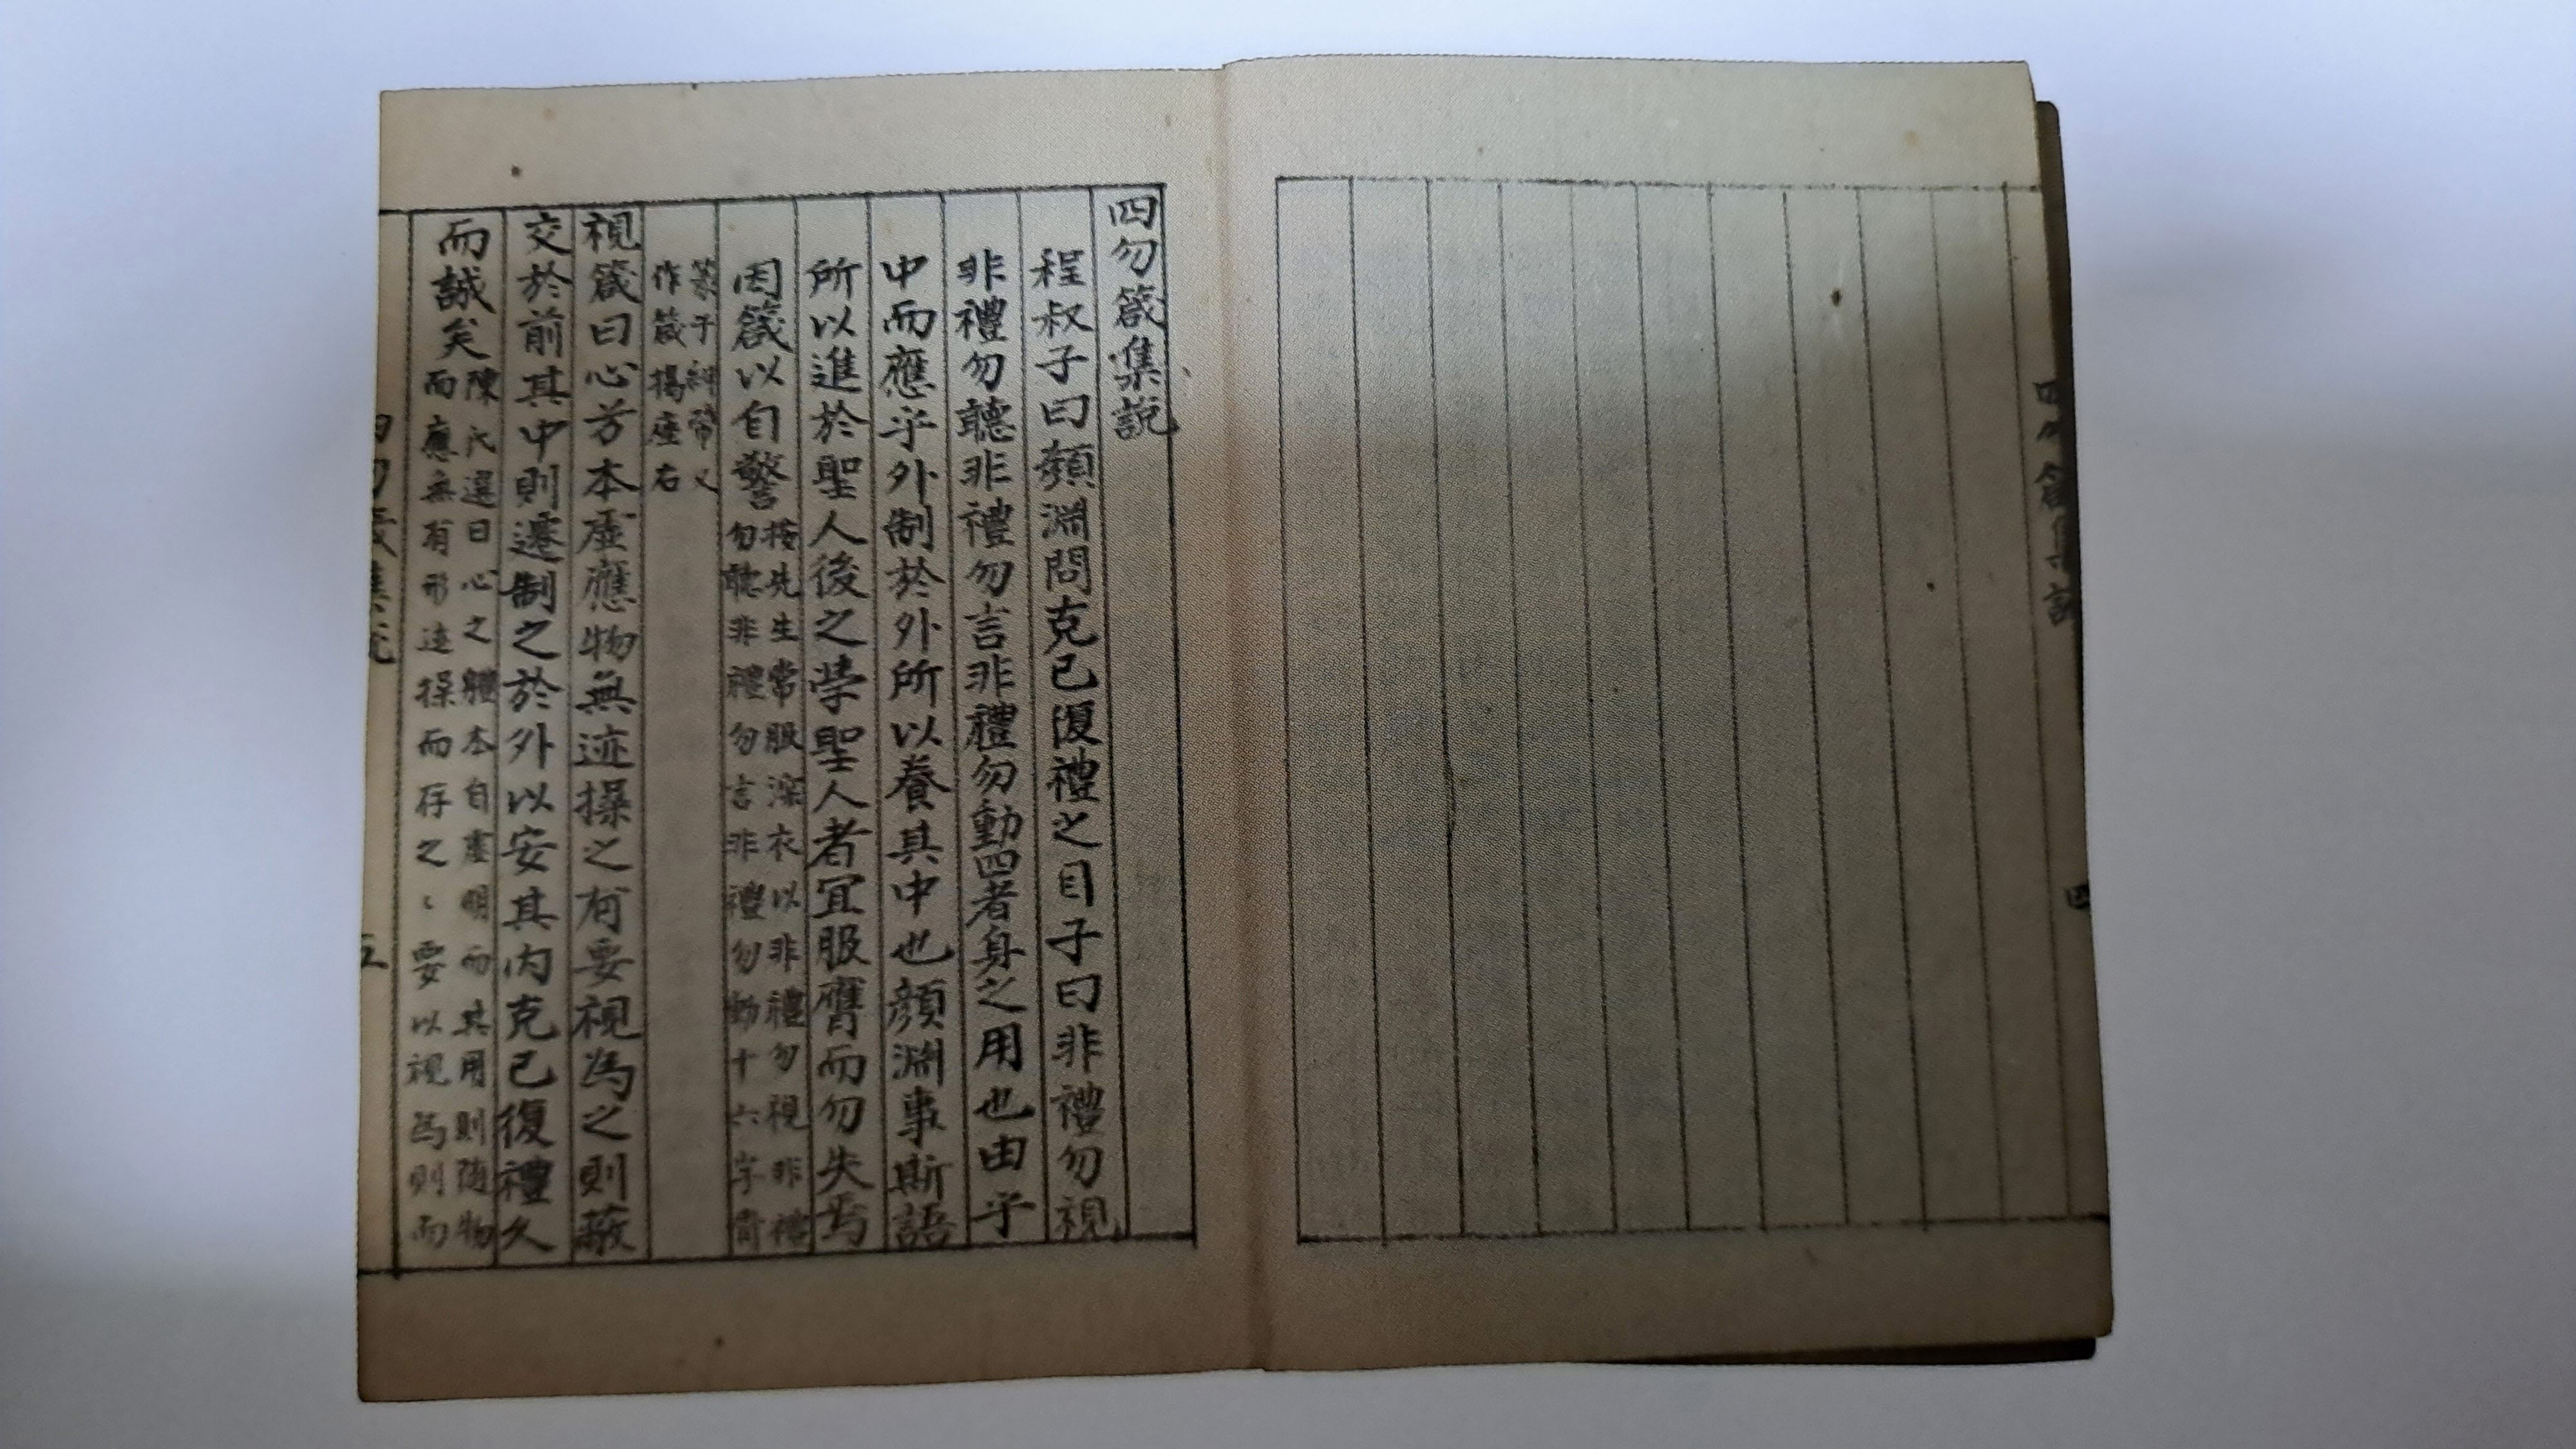 四勿箴集說
四
四勿箴集說
程叔子曰顏淵問克己復禮之目子曰非禮勿視
非禮勿聽非禮勿言非禮勿動四者身之用也由乎
中而應乎外制於外所以養其中也顏淵事斯語
所以進於聖人後之學聖人者宜服膺而勿失焉
因箴以自警
按先生常服深衣以非禮勿視非禮
勿聽非禮勿言非禮勿動十六字書
篆于紳帶又
作箴揭座右
視箴曰心兮本虛應物無迹操之有要視爲之則蔽
交於前其中則遷制之於外以安其內克己復禮久
而誠矣
陳氏選曰心之體本自虛明而其用則隨物
而應無有形迹操而存之〻要以視爲則而
四勿箴集說
五